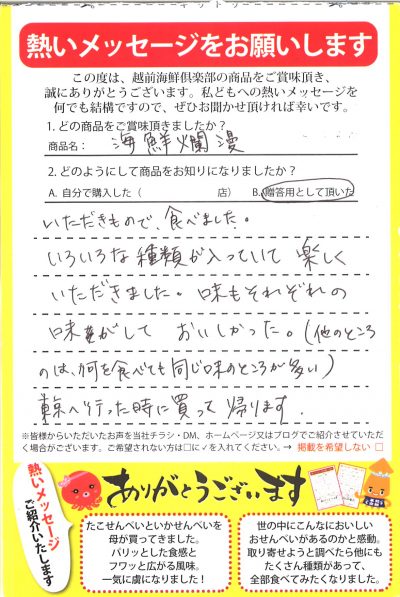 キリトリ
熱いメッセージをお願いします
この度は、越前海鮮倶楽部の商品をご賞味頂き、
誠にありがとうございます。私どもへの熱いメッセージを
何でも結構ですので、ぜひお聞かせ頂ければ幸いです。
1. どの商品をご賞味頂きましたか？
商品名： 海鮮爛漫
2. どのようにして商品をお知りになりましたか？
A. 自分で購入した（ 店） B. 贈答用として頂いた
いただきもので、食べました。
いろいろな種類が入っていて 楽しく
いただきました。味もそれぞれの
味がして おいしかった。（他のところ
のは、何を食べても同じ味のところが多い）
東京へ行った時に買って 帰ります.
※皆様からいただいたお声を当社チラシ・DM、ホームページ又はブログでご紹介させていただ
く場合がございます。ご希望されない方は□に✓を入れてください。→ 掲載を希望しない □
熱いメッセージ
ご紹介いたします
ありがとうございます
たこせんべいといかせんべいを
母が買ってきました。
パリッとした食感と
フワッと広がる風味。
一気に虜になりました！
世の中にこんなにおいしい
おせんべいがあるのかと感動。
取り寄せようと調べたら他にも
たくさん種類があって、
全部食べてみたくなりました。